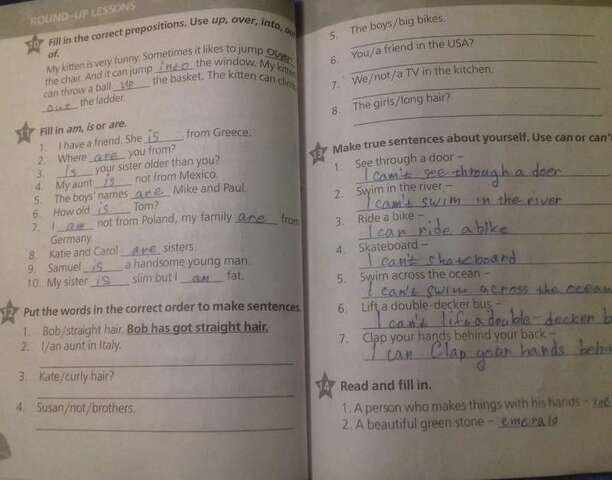 ROUND-UP LESSONS
10 Fill in the correct prepositions. Use up, over, into, out
of.
My kitten is very funny. Sometimes it likes to jump over
the chair. And it can jump into the window. My kitten
can throw a ball up the basket. The kitten can climb
out the ladder.
11 Fill in am, is or are.
1. I have a friend. She is from Greece.
2. Where are you from?
3. is your sister older than you?
4. My aunt is not from Mexico.
5. The boys' names are Mike and Paul.
6. How old is Tom?
7. I am not from Poland, my family are from
Germany.
8. Katie and Carol are sisters.
9. Samuel is a handsome young man.
10. My sister is slim but I am fat.
12 Put the words in the correct order to make sentences.
1. Bob/straight hair. Bob has got straight hair.
2. I/an aunt in Italy.
3. Kate/curly hair?
4. Susan/not/brothers.
5. The boys/big bikes.
6. You/a friend in the USA?
7. We/not/a TV in the kitchen.
8. The girls/long hair?
13 Make true sentences about yourself. Use can or can't
1. See through a door –
I can't see through a door
2. Swim in the river –
I can't swim in the river
3. Ride a bike –
I can ride a bike
4. Skateboard –
I can't skateboard
5. Swim across the ocean –
I can't swim across the ocean
6. Lift a double-decker bus –
I can't lift a double-decker b
7. Clap your hands behind your back –
I can Clap your hands behin
14 Read and fill in.
1. A person who makes things with his hands –
2. A beautiful green stone – emerald